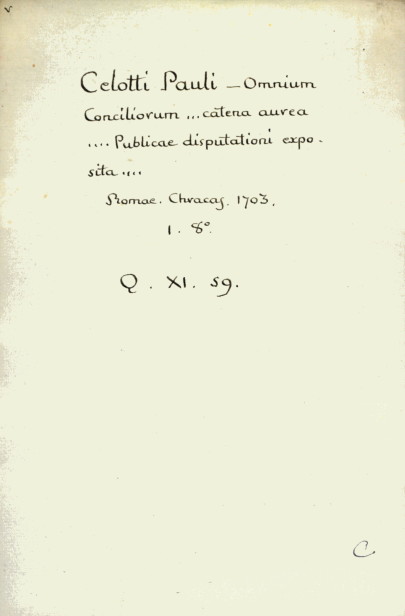 v
Celotti Pauli — Omnium
Conciliorum ... catena aurea
.... Publicae disputationi expo-
sita ....
Romae. Chracas. 1703.
1. 8º.
Q. XI. 59.
C